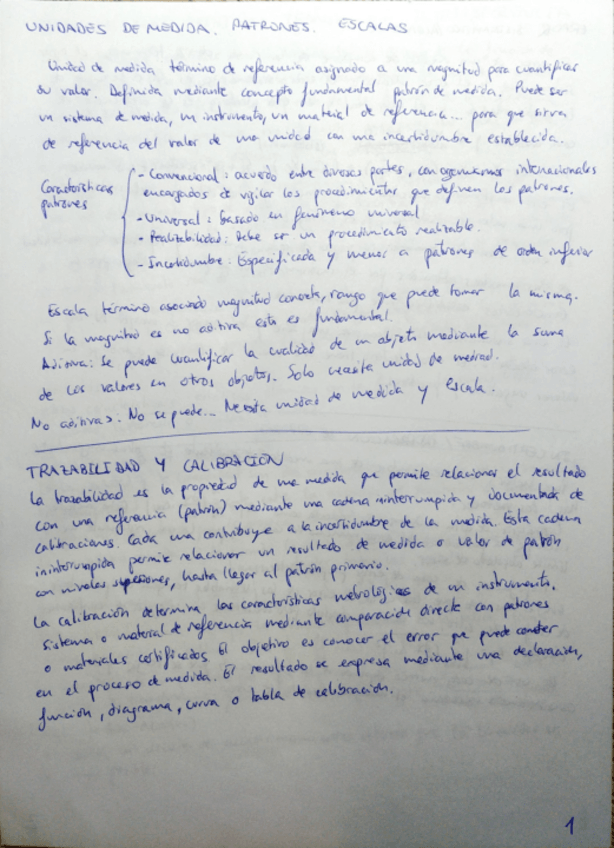 UNIDADES DE MEDIDA. PATRONES. ESCALAS
Unidad de medida término de referencia asignado a una magnitud para cuantificar
su valor. Definida mediante concepto fundamental patrón de medida. Puede ser
un sistema de medida, un instrumento, un material de referencia... para que sirva
de referencia del valor de una unidad con una incertidumbre establecida.
Características patrones
- Convencional: acuerdo entre diversas partes, con organismos internacionales
encargados de vigilar los procedimientos que definen los patrones.
- Universal: basado en fenómeno universal
- Realizabilidad: Debe ser un procedimiento realizable.
- Incertidumbre: Especificada y menor a patrones de orden inferior
Escala término asociado magnitud concreta, rango que puede tomar la misma.
Si la magnitud es no aditiva esta es fundamental.
Aditiva: Se puede cuantificar la cualidad de un objeto mediante la suma
de los valores en otros objetos. Solo necesita unidad de medida.
No aditivas: No se puede... Necesita unidad de medida y escala.
TRAZABILIDAD Y CALIBRACION
La trazabilidad es la propiedad de una medida que permite relacionar el resultado
con una referencia (patrón) mediante una cadena ininterrumpida y documentada de
calibraciones. Cada una contribuye a la incertidumbre de la medida. Esta cadena
ininterrumpida permite relacionar un resultado de medida o valor de patrón
con niveles superiores, hasta llegar al patrón primario.
La calibración determina las características metrológicas de un instrumento,
sistema o material de referencia mediante comparación directa con patrones
o materiales certificados. El objetivo es conocer el error que puede cometer
en el proceso de medida. El resultado se expresa mediante una declaración,
función, diagrama, curva o tabla de calibración.
1